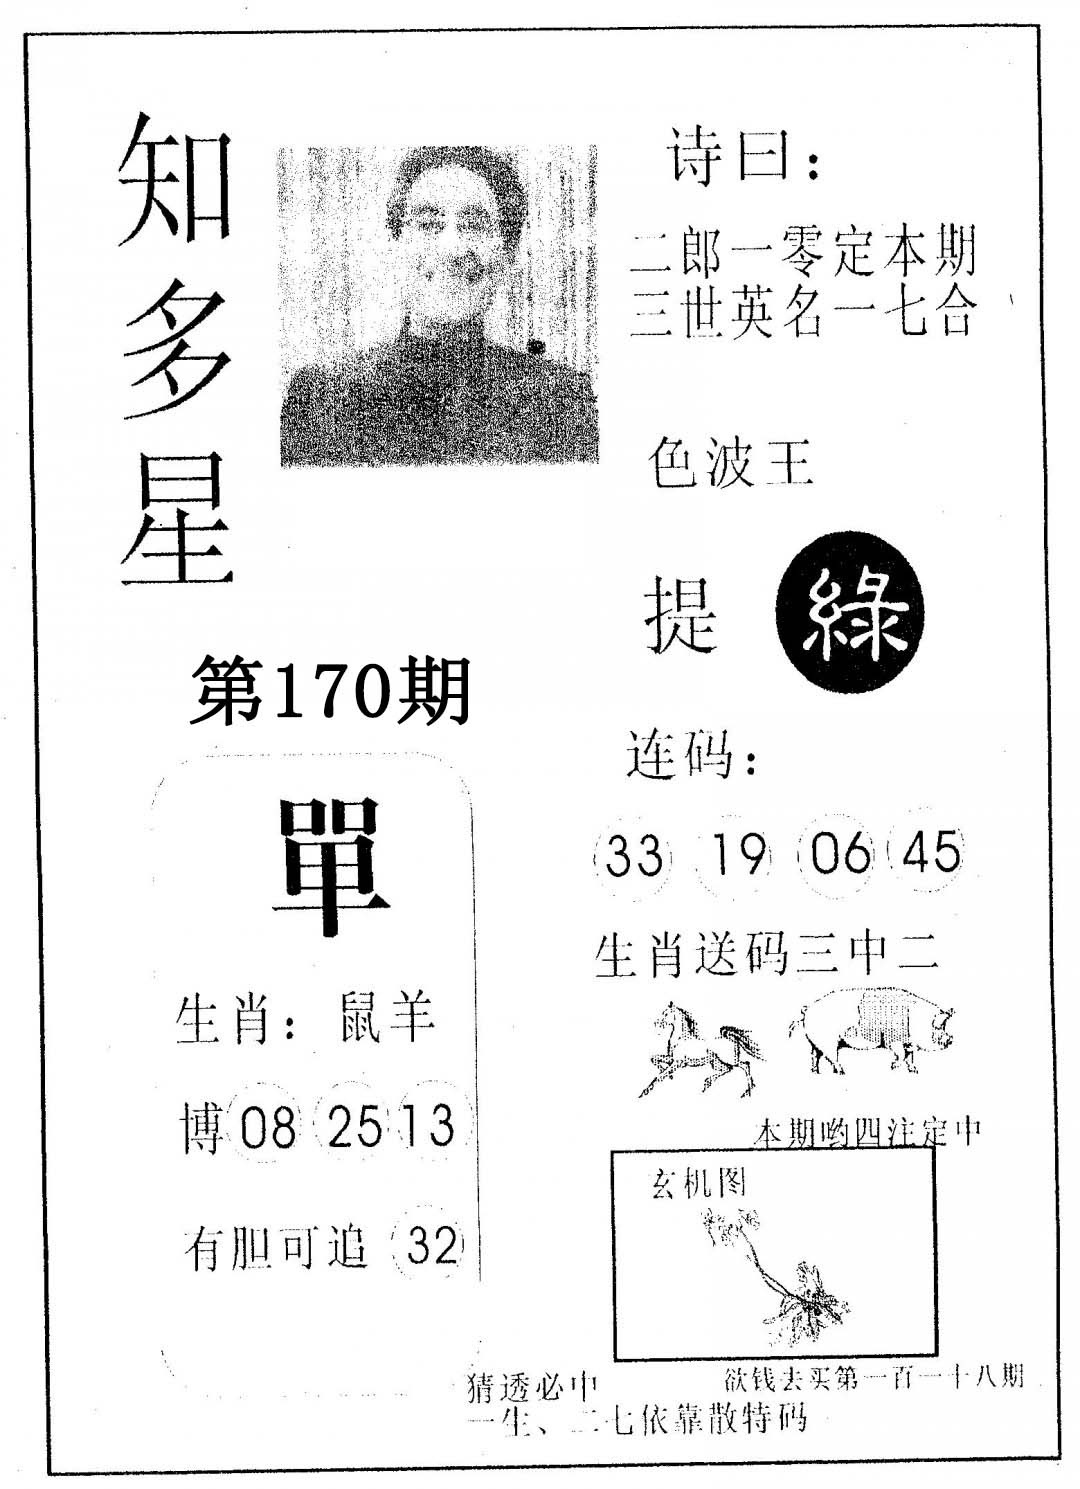 知多星
诗曰：
二郎一零定本期
三世英名一七合
色波王
提 綠
第170期
連码：
33 19 06 45
單
生肖送码三中二
生肖：鼠羊
博 08 25 13
本期哟四注定中
玄机图
有胆可追 32
欲钱去买第一百一十八期
猜透必中
一生、二七依靠散特码